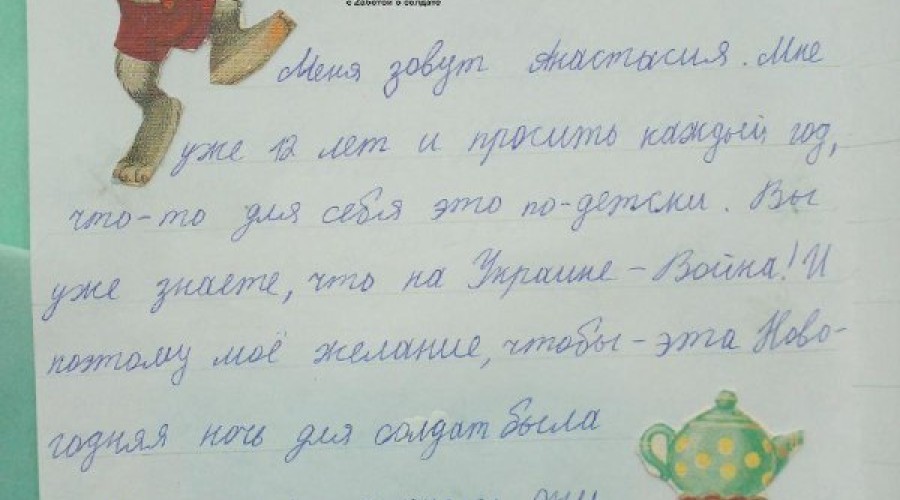 с Заботой о солдате
Меня зовут Анастасия. Мне
уже 12 лет и просить каждый год,
что-то для себя это по-детски. Вы
уже знаете, что на Украине - Война! И
поэтому моё желание, чтобы - эта Ново-
годняя ночь для солдат была
они